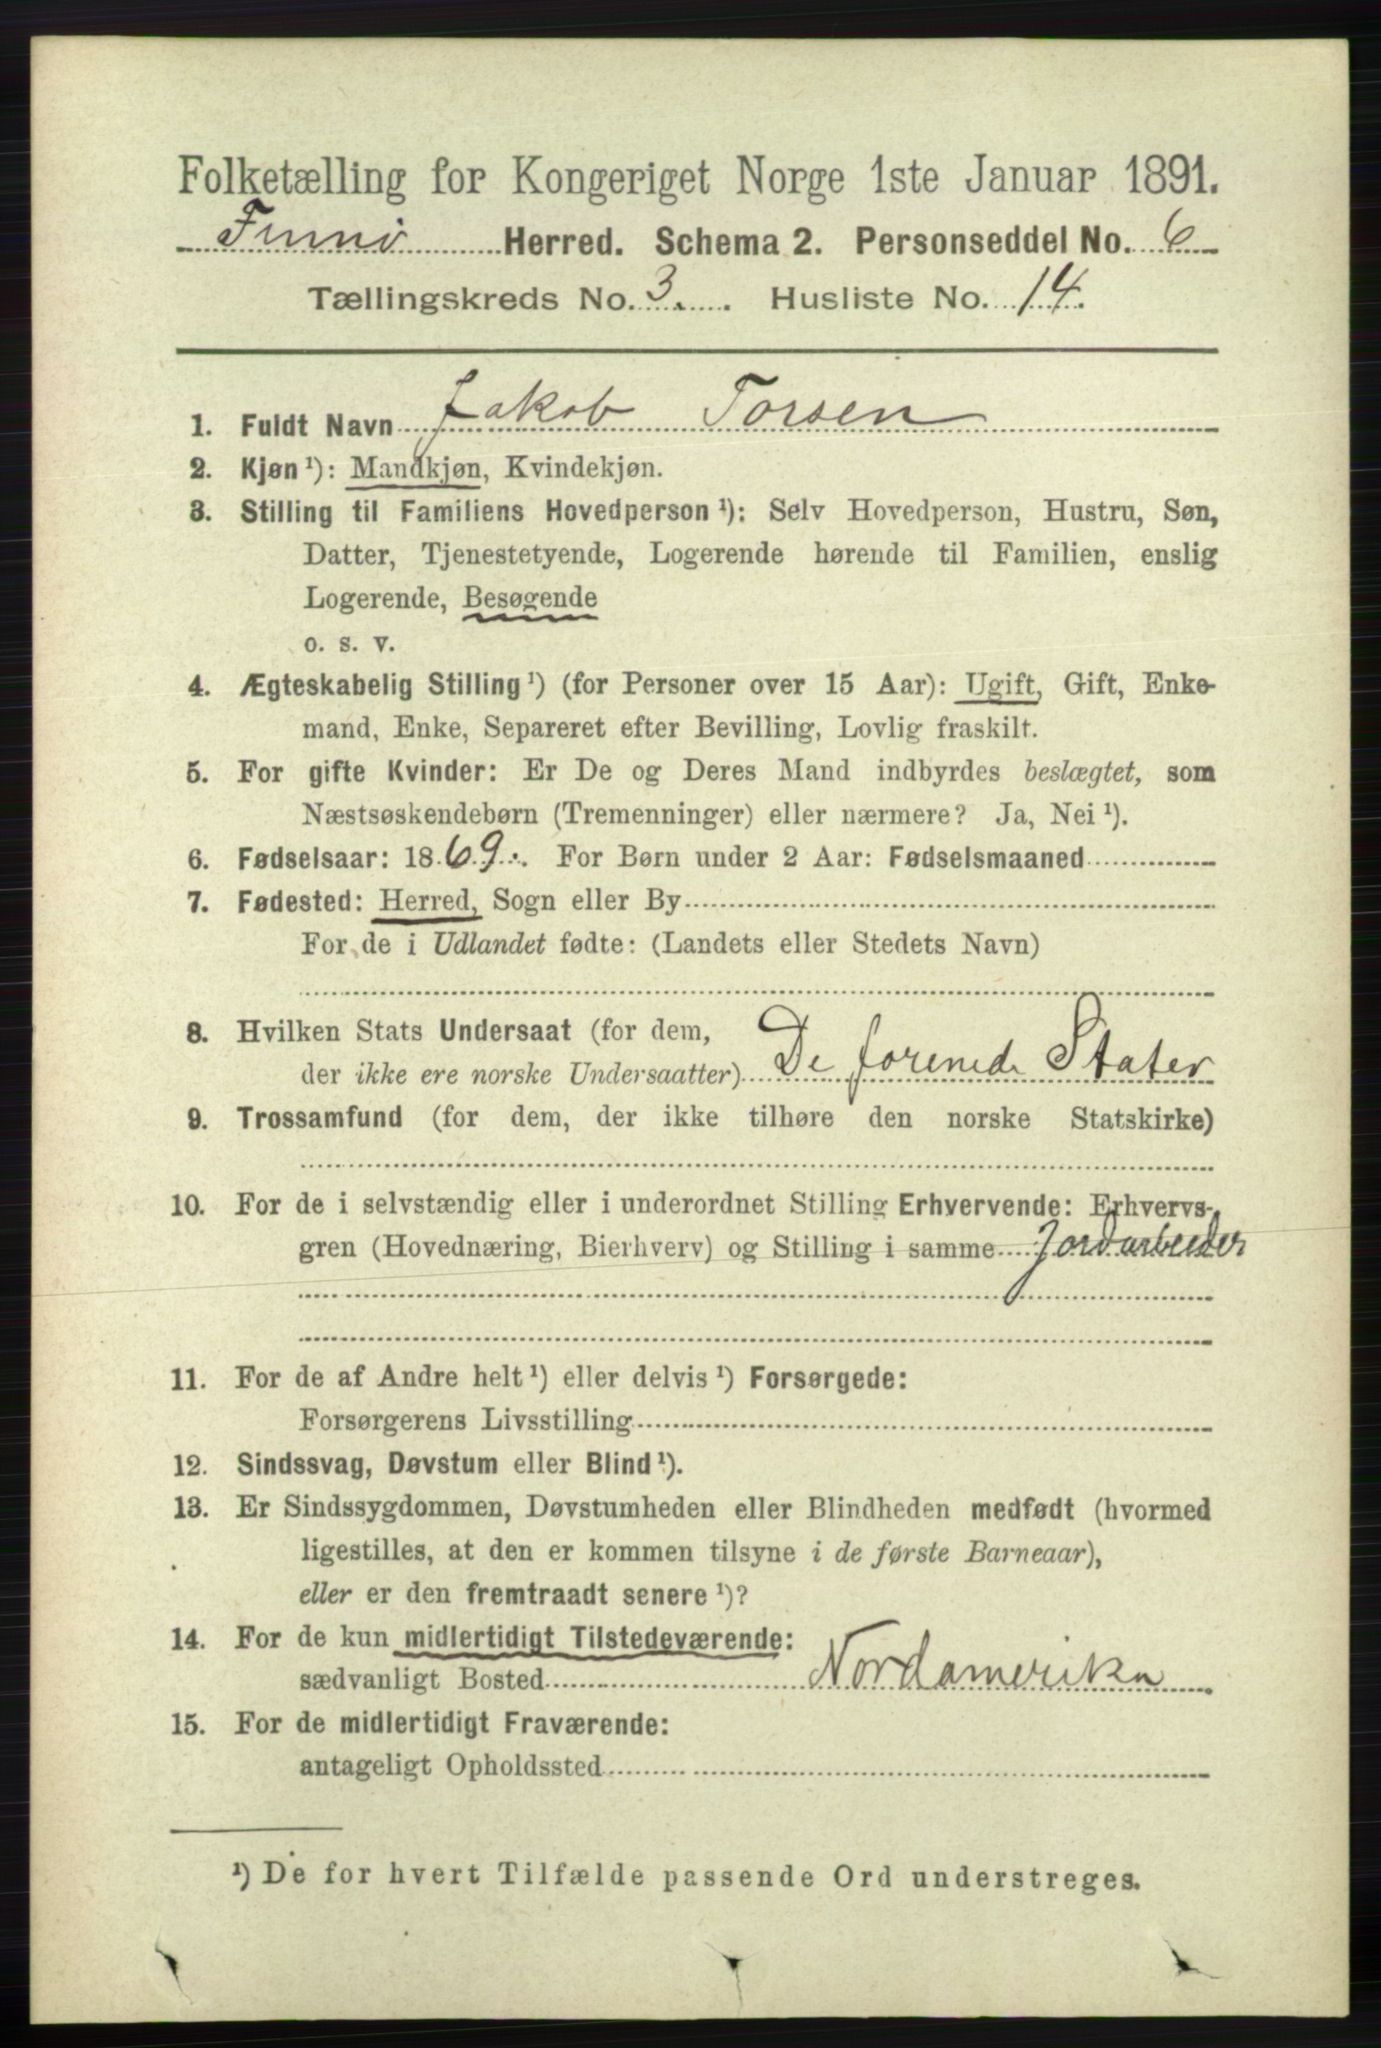 Folketælling for Kongeriget Norge 1ste Januar 1891.
Finnø Herred. Schema 2. Personseddel No. 6
Tællingskreds No. 3. Husliste No. 14.
1. Fuldt Navn Jakob Torsen
2. Kjøn ¹): Mandkjøn, Kvindekjøn.
3. Stilling til Familiens Hovedperson ¹): Selv Hovedperson, Hustru, Søn,
Datter, Tjenestetyende, Logerende hørende til Familien, enslig
Logerende, Besøgende
o. s. v.
4. Ægteskabelig Stilling ¹) (for Personer over 15 Aar): Ugift, Gift, Enke-
mand, Enke, Separeret efter Bevilling, Lovlig fraskilt.
5. For gifte Kvinder: Er De og Deres Mand indbyrdes beslægtet, som
Næstsøskendebørn (Tremenninger) eller nærmere? Ja, Nei ¹).
6. Fødselsaar: 1869. For Børn under 2 Aar: Fødselsmaaned
7. Fødested: Herred, Sogn eller By
For de i Udlandet fødte: (Landets eller Stedets Navn)
8. Hvilken Stats Undersaat (for dem,
der ikke ere norske Undersaatter) De forenede Stater
9. Trossamfund (for dem, der ikke tilhøre den norske Statskirke)
10. For de i selvstændig eller i underordnet Stilling Erhvervende: Erhvervs-
gren (Hovednæring, Bierhverv) og Stilling i samme Jordarbeider
11. For de af Andre helt ¹) eller delvis ¹) Forsørgede:
Forsørgerens Livsstilling
12. Sindssvag, Døvstum eller Blind ¹).
13. Er Sindssygdommen, Døvstumheden eller Blindheden medfødt (hvormed
ligestilles, at den er kommen tilsyne i de første Barneaar),
eller er den fremtraadt senere ¹)?
14. For de kun midlertidigt Tilstedeværende:
sædvanligt Bosted Nordamerika
15. For de midlertidigt Fraværende:
antageligt Opholdssted
¹) De for hvert Tilfælde passende Ord understreges.